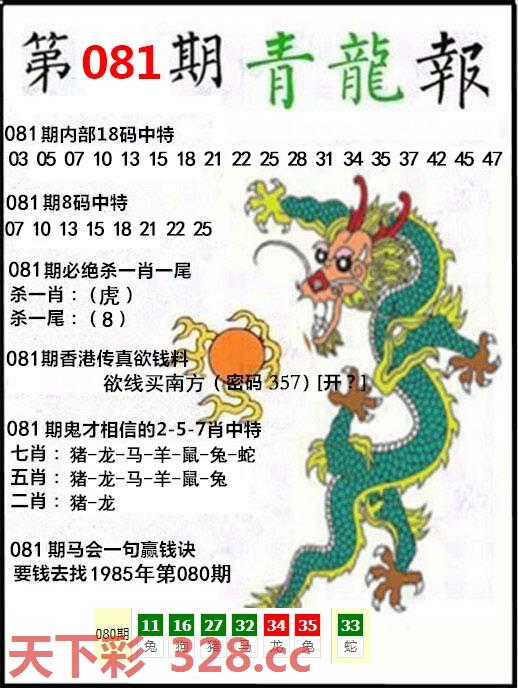 第 081 期 青龍報
081期内部18码中特
03 05 07 10 13 15 18 21 22 25 28 31 34 35 37 42 45 47
081期8码中特
07 10 13 15 18 21 22 25
081期必绝杀一肖一尾
杀一肖：（虎）
杀一尾：（8）
081期香港传真欲钱料
欲线买南方（密码 357）[开？]
081期鬼才相信的2-5-7肖中特
七肖：猪-龙-马-羊-鼠-兔-蛇
五肖：猪-龙-马-羊-鼠-兔
二肖：猪-龙
081期马会一句赢钱诀
要钱去找1985年第080期
080期 11 16 27 32 34 35 33
兔 狗 猪 马 龙 兔 蛇
天下彩 328.cc